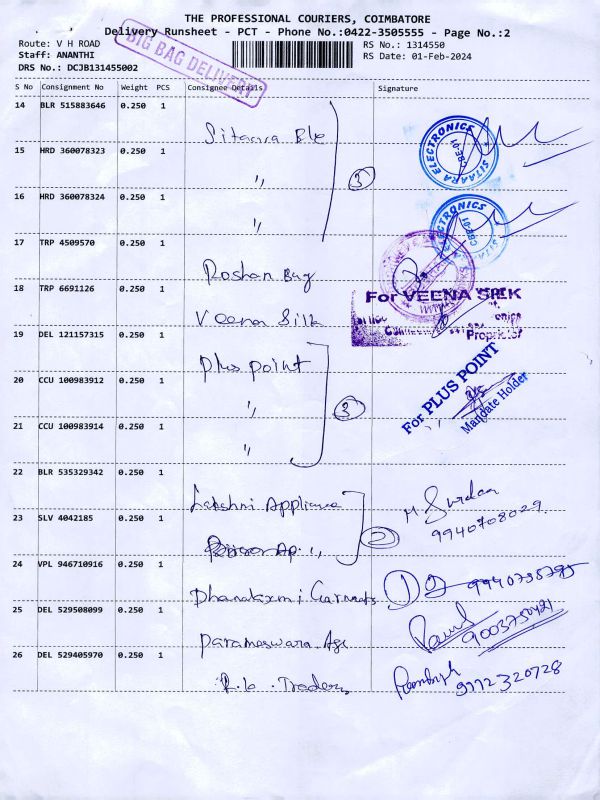 THE PROFESSIONAL COURIERS, COIMBATORE
Delivery Runsheet - PCT - Phone No.:0422-3505555 - Page No.:2
Route: V H ROAD
RS No.: 1314550
Staff: ANANTHI
RS Date: 01-Feb-2024
DRS No.: DCJB131455002
BIG BAG DELIVERY
S No Consignment No Weight PCS Consignee Details Signature
14 BLR 515883646 0.250 1
Sitaara Ele
SITAARA ELECTRONICS
CBE-01
15 HRD 360078323 0.250 1
,, 3
16 HRD 360078324 0.250 1
,,
CBE-01
17 TRP 4509570 0.250 1
Roshan Bag
18 TRP 6691126 0.250 1
Veena Silk
For VEENA SILK
Proprietor
19 DEL 121157315 0.250 1
Plus point
For PLUS POINT
Mandate Holder
20 CCU 100983912 0.250 1
,, 3
21 CCU 100983914 0.250 1
,,
22 BLR 535329342 0.250 1
Lakshmi Appliance
9940708029
23 SLV 4042185 0.250 1
,, 2
24 VPL 946710916 0.250 1
Dhanalaxmi Garments
25 DEL 529508099 0.250 1
Parameswara Age
26 DEL 529405970 0.250 1
R.b. Traders